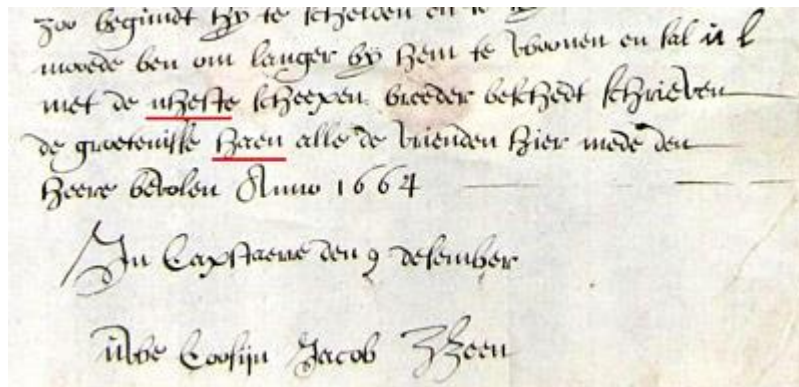 zoo begindt hy te schelden en ic
moede ben om langer by hem te woonen en sal u l
met de nheste scheepen breeder beschedt schrieven
de groetenisse haen alle de vrienden hier mede den
heere bevolen Anno 1664
In Capstaerve den 9 desember
uwe Coosijn Jacob